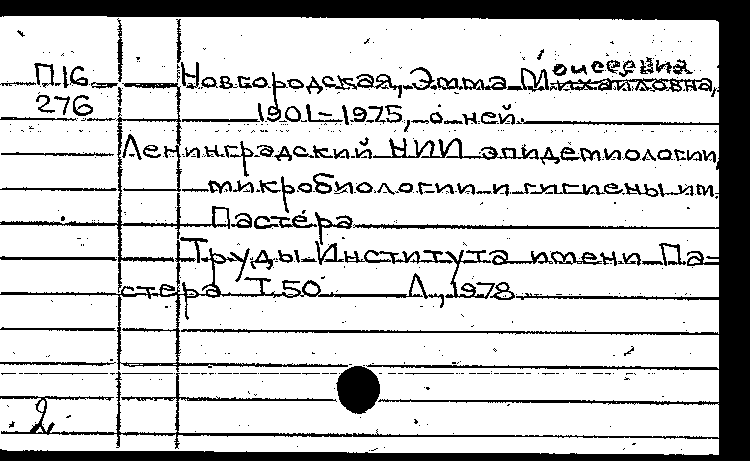 П16
276
Моисеевна
Новгородская, Эмма Михайловна,
1901-1975, о ней.
Ленинградский НИИ эпидемиологии,
микробиологии и гигиены им.
Пастера
Труды Института имени Па-
стера Т.50 Л., 1978.
2.